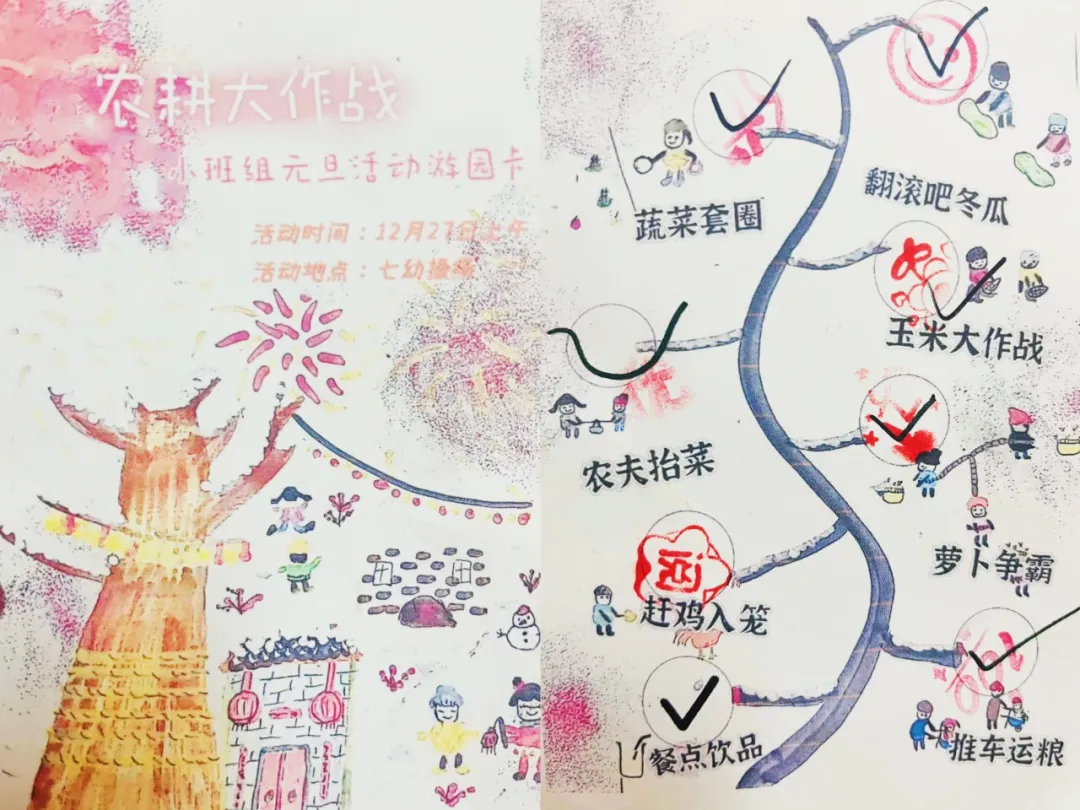 农耕大作战
小班组元旦活动游园卡
活动时间：12月27日上午
活动地点：七幼操场
翻滚吧冬瓜
蔬菜套圈
玉米大作战
农夫抬菜
萝卜争霸
赶鸡入笼
推车运粮
餐点饮品